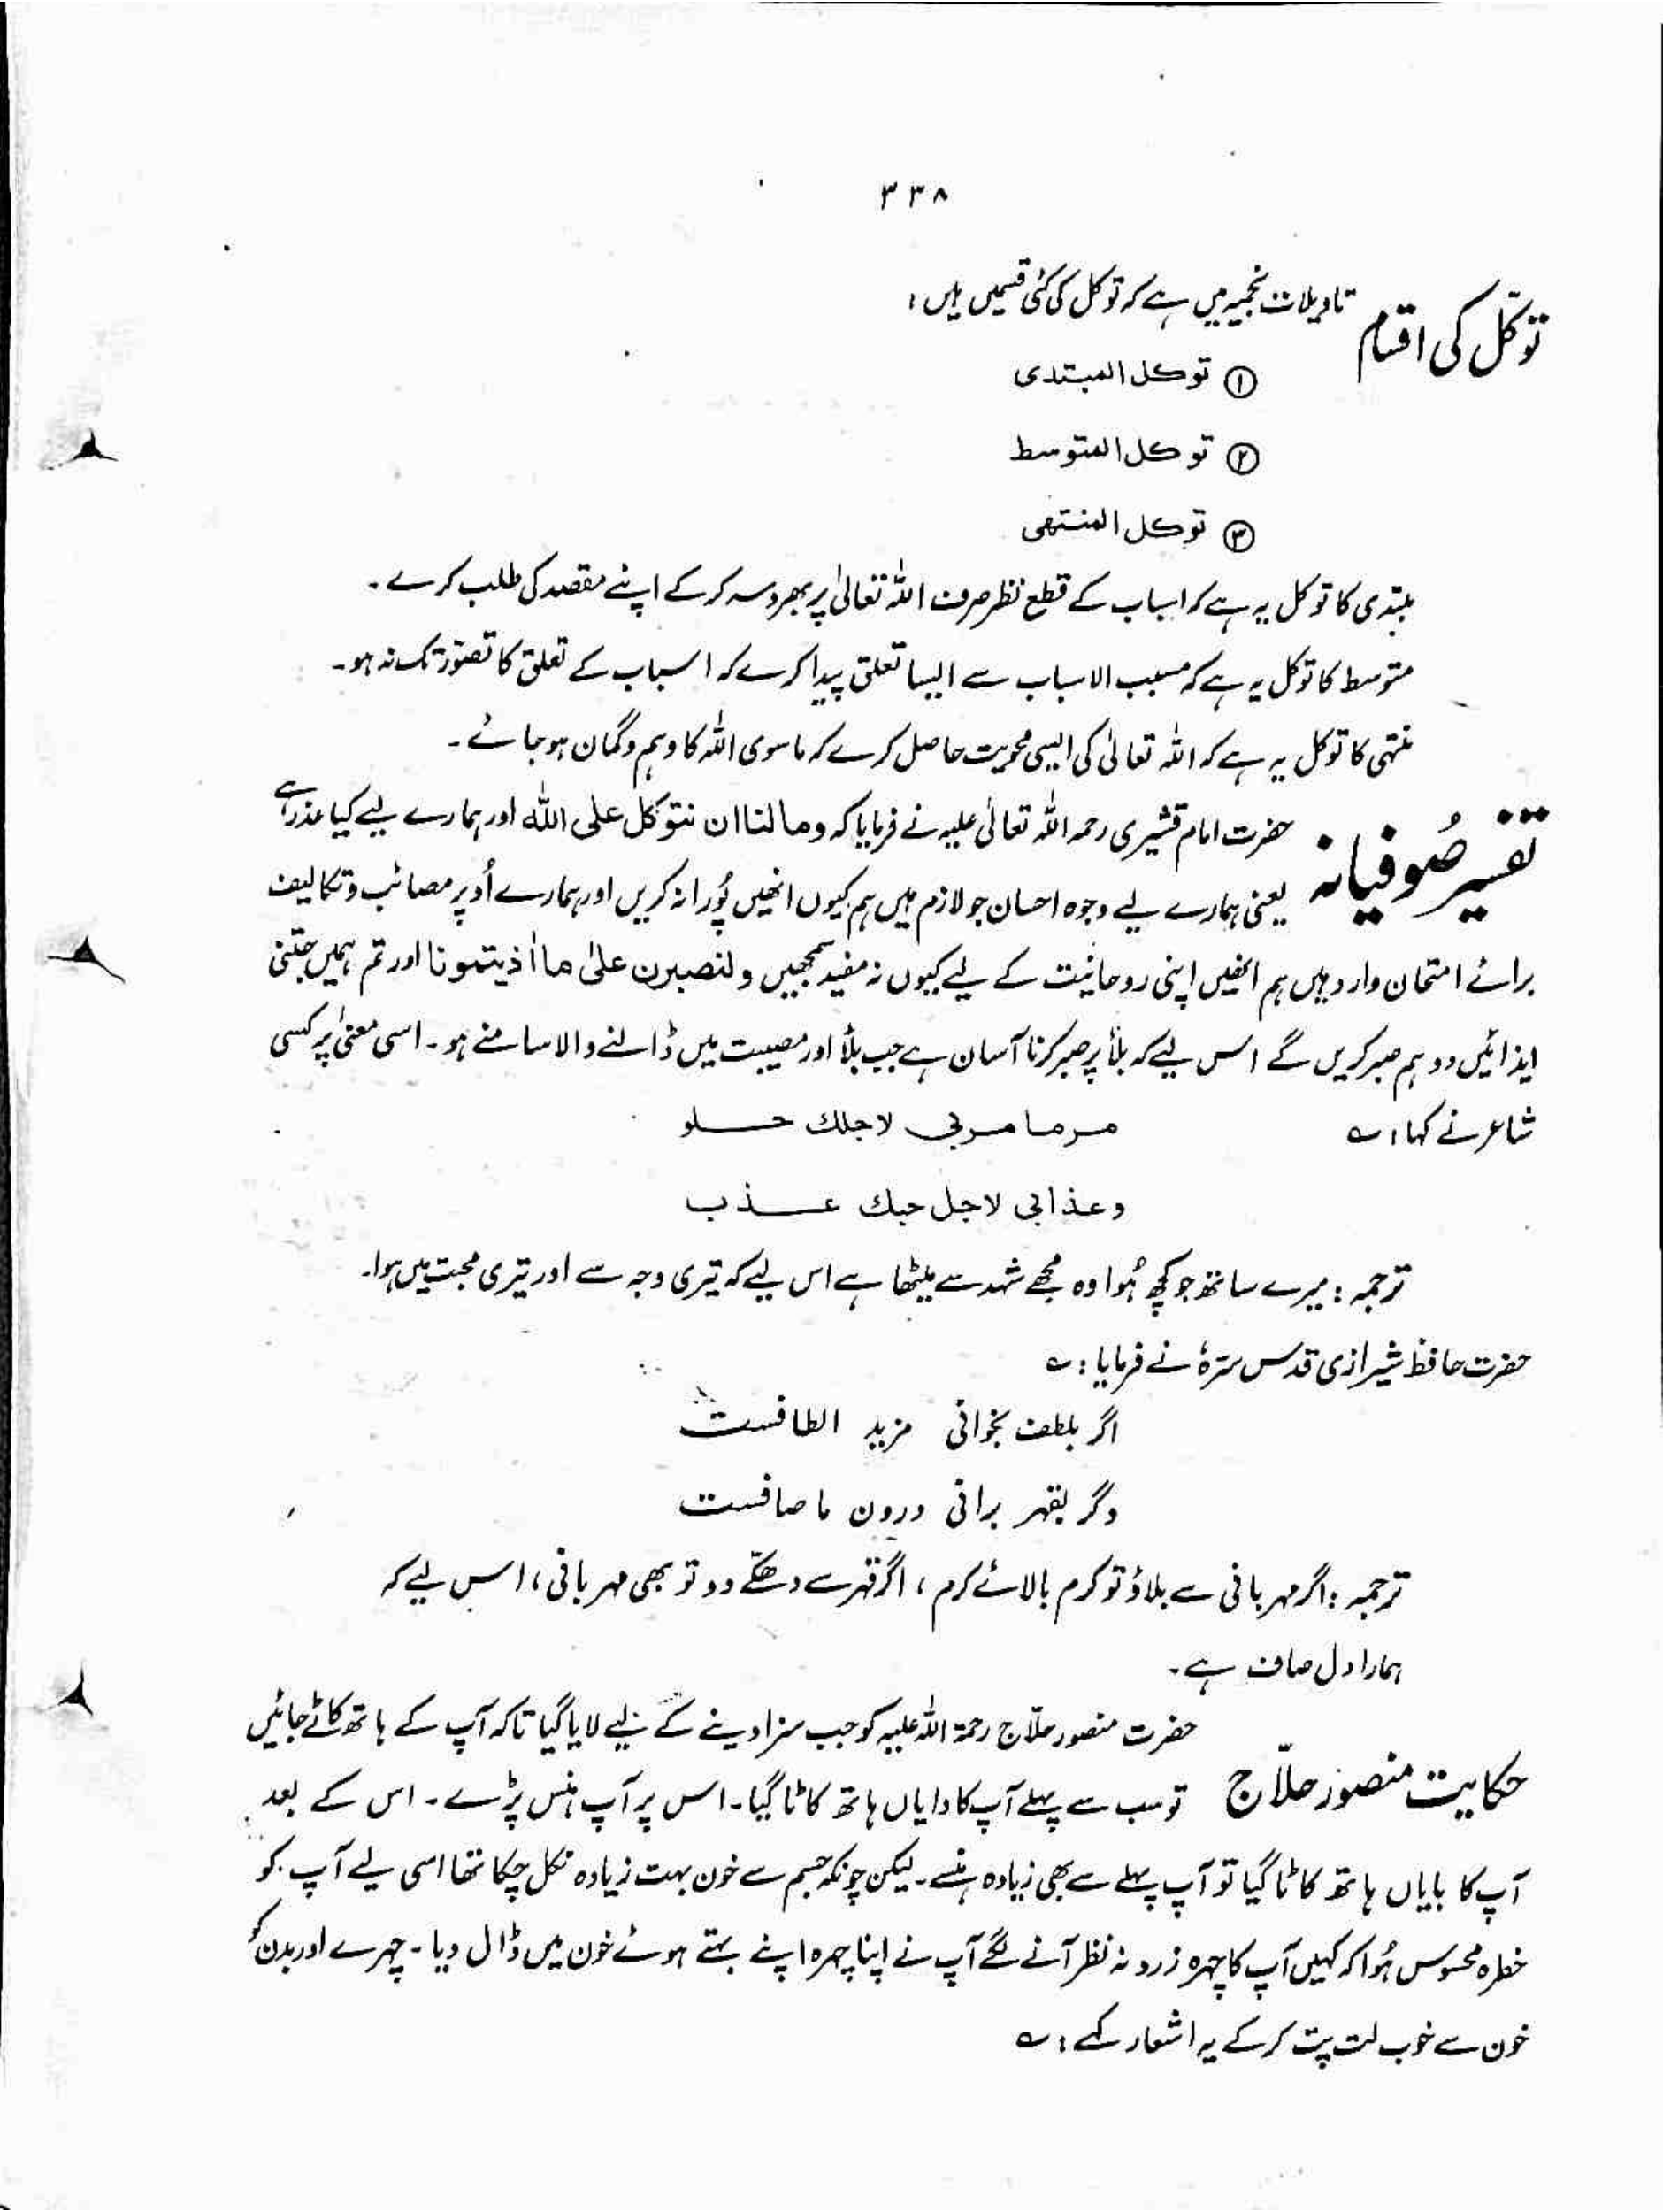 ۳۳۸
توکّل کی اقسام تاویلات نجمیہ میں ہے کہ توکل کی کئی قسمیں ہیں :
① توکل المبتدی
② توکل المتوسط
③ توکل المنتھی
مبتدی کا توکل یہ ہے کہ اسباب کے قطع نظر صرف اللہ تعالیٰ پر بھروسہ کرکے اپنے مقصد کی طلب کرے ۔
متوسط کا توکل یہ ہے کہ مسبب الاسباب سے ایسا تعلق پیدا کرے کہ اسباب کے تعلق کا تصوّر تک نہ ہو ۔
منتہی کا توکل یہ ہے کہ اللہ تعالیٰ کی ایسی محویت حاصل کرے کہ ماسوی اللہ کا وہم وگمان ہوجائے ۔
تفسیر صُوفیانہ حضرت امام قشیری رحمہ اللہ تعالیٰ علیہ نے فرمایا کہ وما لنا ان نتوکل علی اللہ اور ہمارے لیے کیا عذر ہے
یعنی ہمارے لیے وجوہ احسان جو لازم ہیں ہم کیوں انھیں پُورا نہ کریں اور ہمارے اُوپر مصائب و تکالیف
برائے امتحان وارد ہیں ہم انھیں اپنی روحانیت کے لیے کیوں نہ مفید سمجھیں ولنصبرن علیٰ ما اٰذیتمونا اور تم ہمیں جتنی
ایذائیں دو ہم صبر کریں گے اس لیے کہ بلأ پر صبر کرنا آسان ہے جب بلأ اور مصیبت میں ڈالنے والا سامنے ہو ۔ اسی معنیٰ پر کسی
شاعر نے کہا : ؎ مر ما مر بی لاجلك حلو
وعذابی لاجل حبك عذب
ترجمہ : میرے ساتھ جو کچھ ہُوا وہ مجھے شہد سے میٹھا ہے اس لیے کہ تیری وجہ سے اور تیری محبت میں ہوا۔
حضرت حافظ شیرازی قدس سترہٗ نے فرمایا : ؎
اگر بلطف بخوانی مزید الطافست
وگر بقہر برانی درون ما صافست
ترجمہ : اگر مہربانی سے بلاؤ تو کرم بالائے کرم ، اگر قہر سے دھکّے دو تو بھی مہربانی ، اس لیے کہ
ہمارا دل صاف ہے ۔
حضرت منصور حلّاج رحمۃ اللہ علیہ کو جب سزا دینے کے لیے لایا گیا تاکہ آپ کے ہاتھ کاٹے جائیں
حکایت منصور حلّاج تو سب سے پہلے آپ کا دایاں ہاتھ کاٹا گیا ۔ اس پر آپ ہنس پڑے ۔ اس کے بعد
آپ کا بایاں ہاتھ کاٹا گیا تو آپ پہلے سے بھی زیادہ ہنسے ۔ لیکن چونکہ جسم سے خون بہت زیادہ نکل چکا تھا اسی لیے آپ کو
خطرہ محسوس ہُوا کہ کہیں آپ کا چہرہ زرد نہ نظر آنے لگے آپ نے اپنا چہرہ اپنے بہتے ہوئے خون میں ڈال دیا ۔ چہرے اور بدن کو
خون سے خوب لت پت کرکے یہ اشعار کہے : ؎